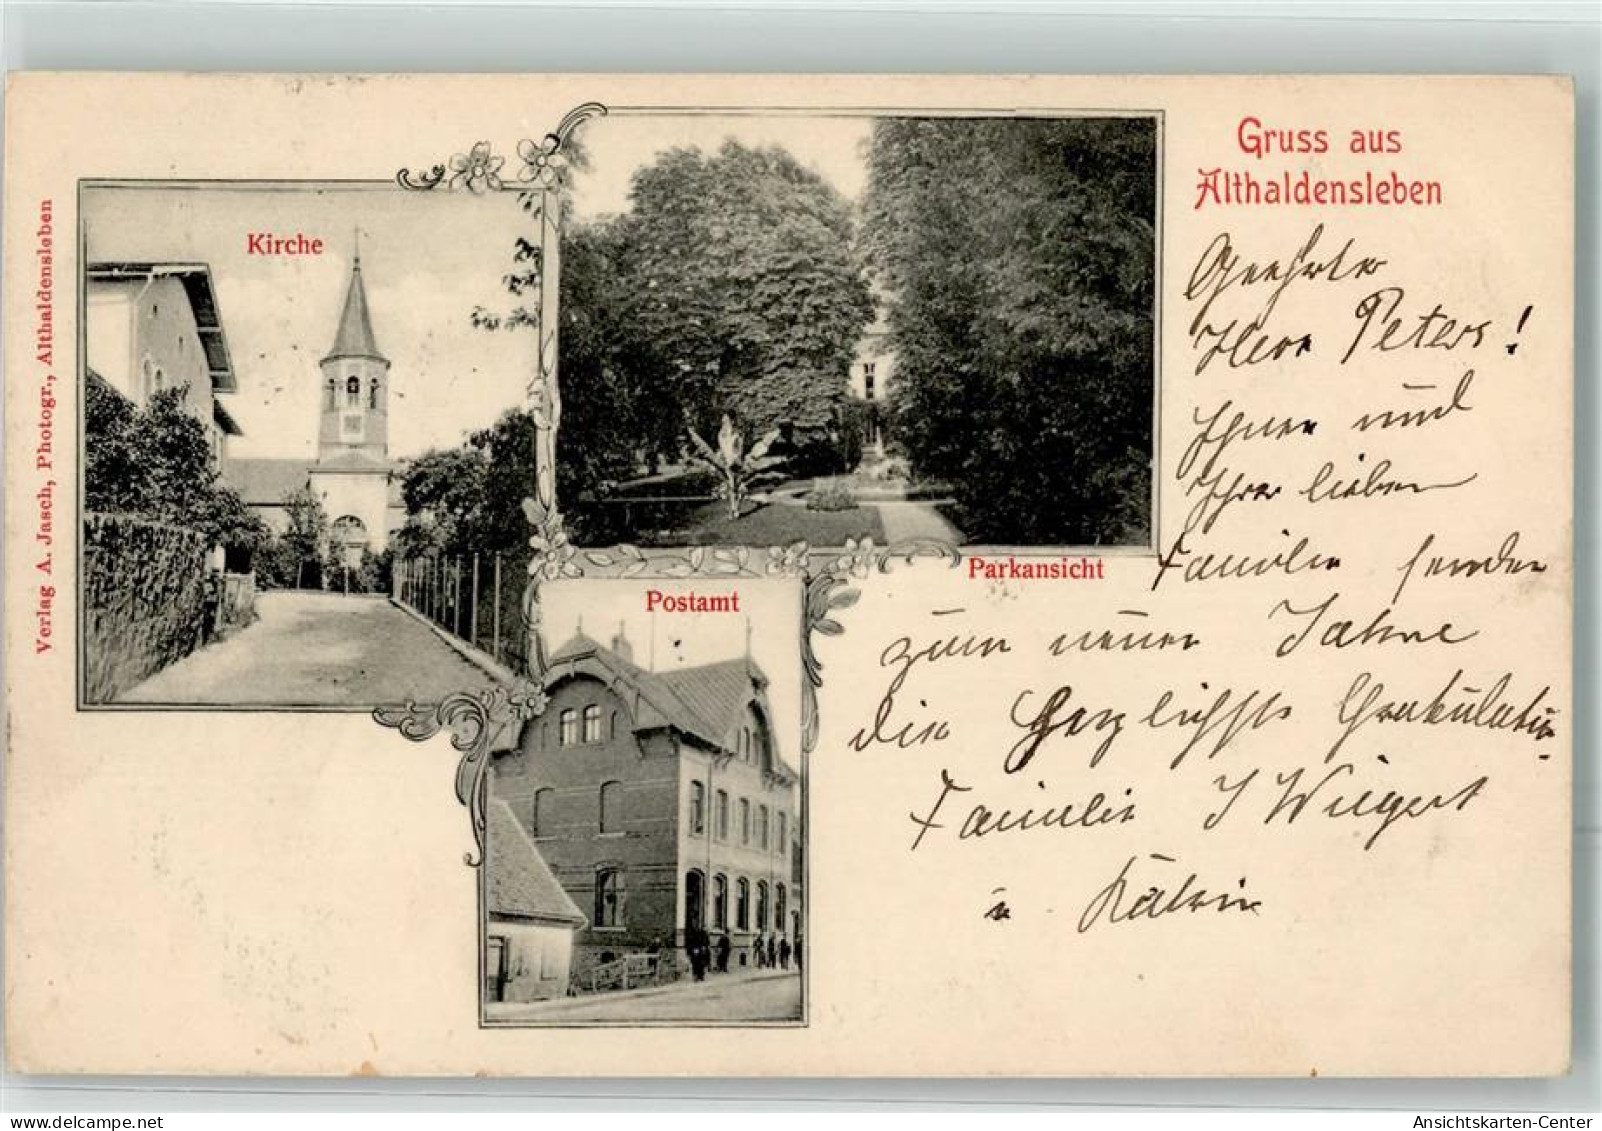 Gruss aus
Althaldensleben
Kirche
Parkansicht
Postamt
Verlag A. Jasch, Photogr., Althaldensleben
Geehrter
Herr Peters!
Ihnen und
Ihrer lieben
Familie senden
zum neuen Jahre
die herzlichste Gratulation
Familie J Wiegert
u
Ansichtskarten-Center